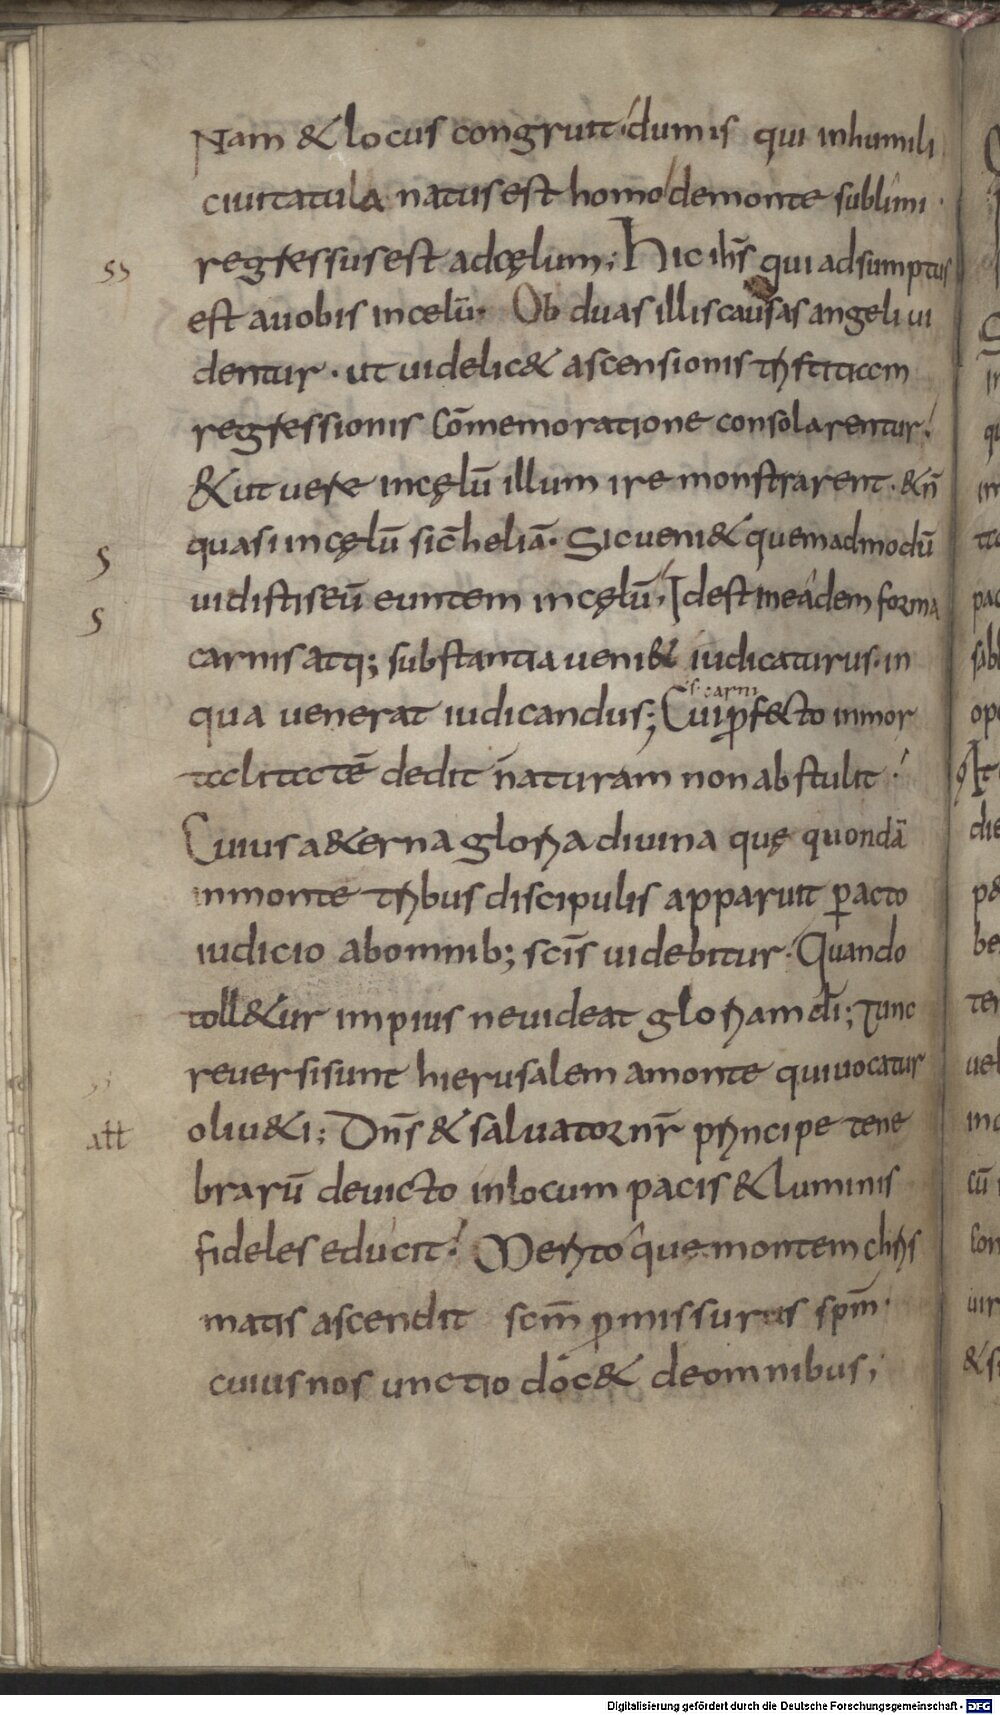 Nam & locus congruit. dum is qui inhumili
ciuitatula natusest homo demonte sublimi·
regressusest adcęlum; Hic ih̄s qui adsumptus
est auobis incelū· Ob duas illiscausas angeli ui
dentur· ut uidelic& ascensionis tristitiam
regressionis cōmemoratione consolarentur.
& ut uere incęlū illum ire monstrarent· & n̄
quasi incęlū sic̄ heliā· Sic ueni& quemadmodū
uidistiseū euntem incęlū; Idest ineadem forma
carnis atq; substantia ueni& iudicaturus· in
s· carni
qua uenerat iudicandus; Cui p̱fecto inmor
talitatē dedit n̄aturam non abstulit.
Cuius a&erna gloria diuina quę quondā
inmonte tribus discipulis apparuit ꝑacto
iudicio abomnib; scīs uidebitur· Quando
toll&ur impius neuideat gloriam dī; Tunc
reuersisunt hierusalem amonte quiuocatur
oliu&i; Dn̄s & saluator nr̄ principe tene
brarū deuicto inlocum pacis & luminis
fideles educit. Merito que montem chris
matis ascendit scm̄ ꝓmissurus spm̄·
cuius nos unctio doc& deomnibus;
ss
s
s
ss
att
Digitalisierung gefördert durch die Deutsche Forschungsgemeinschaft - DFG